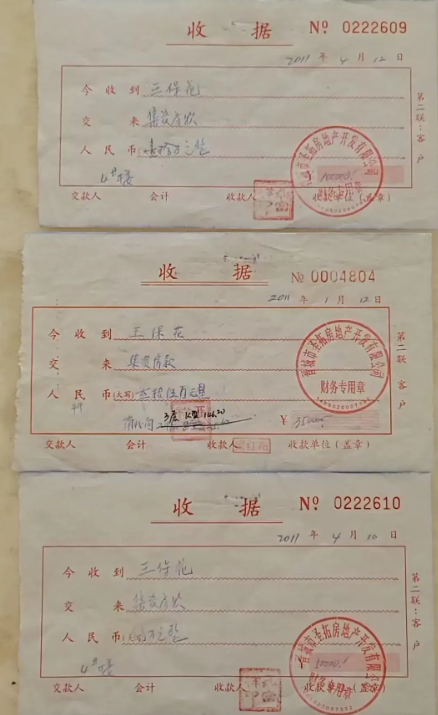 收 据 Nº 0222609
2011 年 4 月 12 日
今 收 到 王保花
交 来 集资房款
人 民 币
4#楼
交款人 会计 收款人 收款单位(盖章)
第二联:客户
圣拓房地产开发有限公司
财务专用章
收 据 Nº 0004804
2011 年 1 月 12 日
今 收 到 王保花
交 来 集资房款
人 民 币(大写)
交款人 会计 收款人 收款单位(盖章)
第二联:客户
市圣拓房地产开发有限公司
财务专用章
收 据 Nº 0222610
2011 年 4 月 10 日
今 收 到 王保花
交 来 集资房款
人 民 币
4#楼
交款人 会计 收款人 收款单位(盖章)
第二联:客户
市圣拓房地产开发有限公司
财务专用章